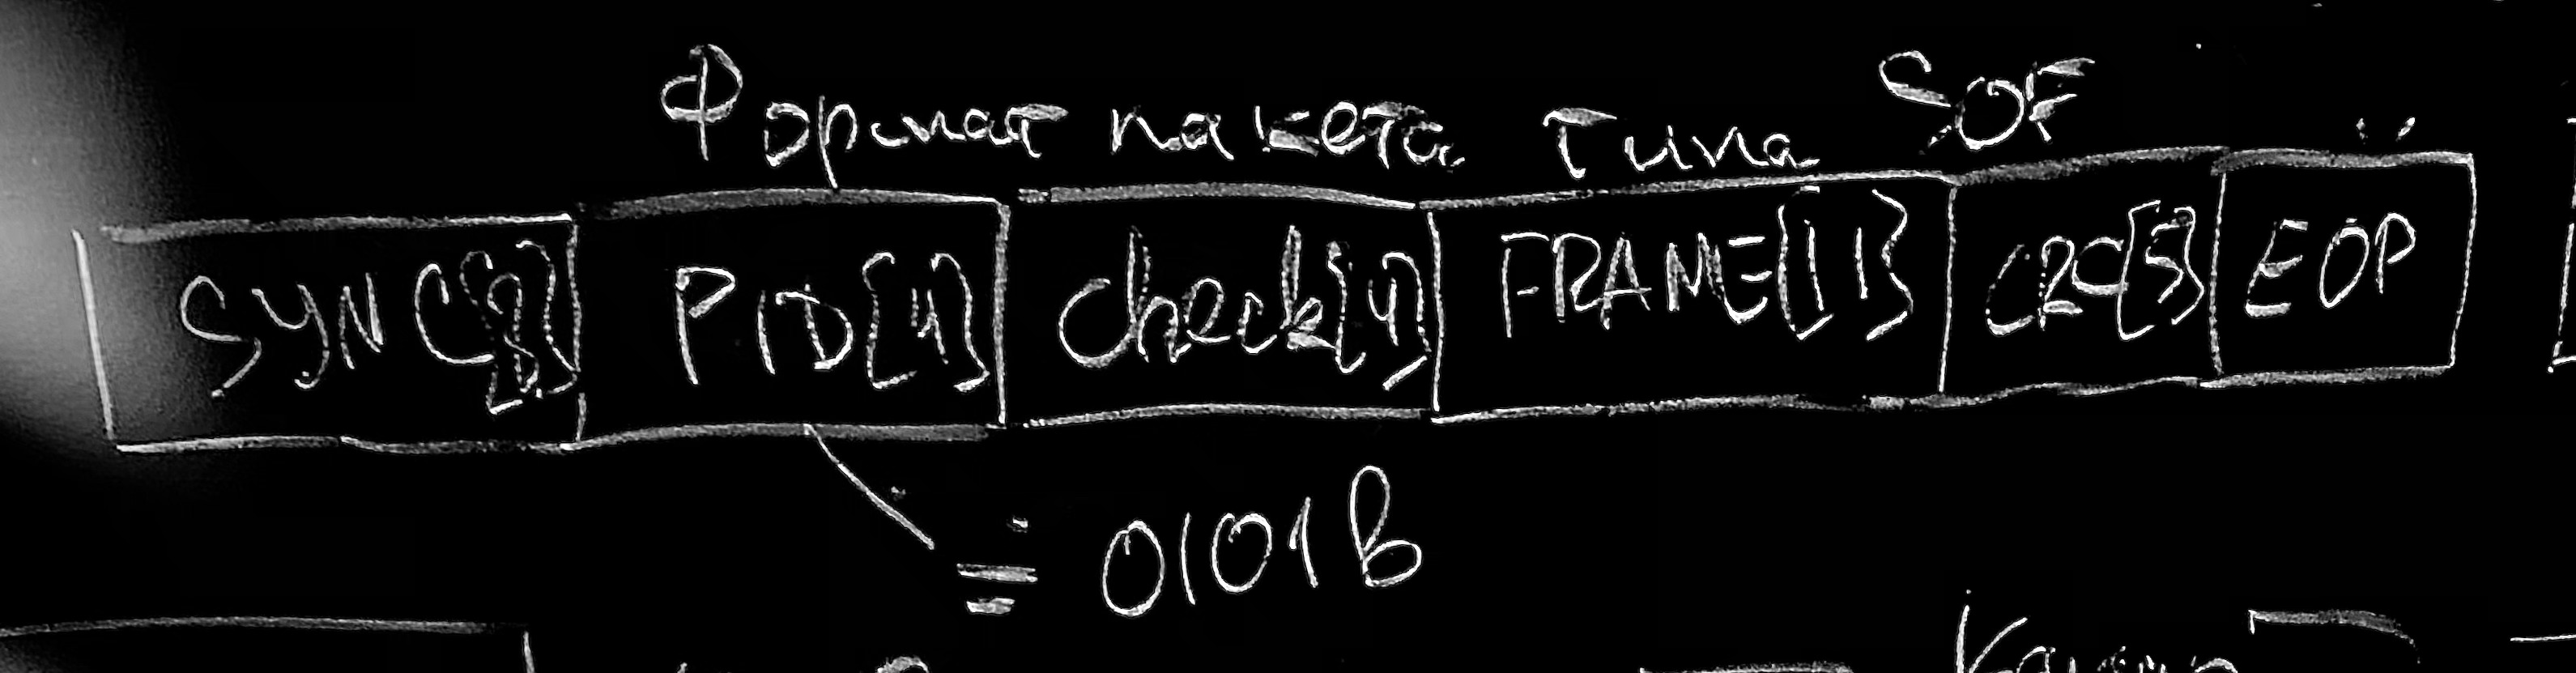 Формат пакета типа SOF
SYNC{8} PID{4} check{4} FRAME{11} CRC{5} EOP
= 0101B